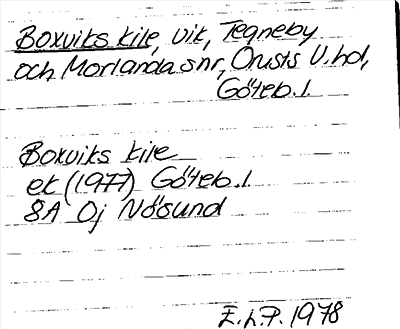 Boxviks kile, vik, Tegneby
och Morlanda snr, Orusts V. hd,
Göteb. l.
Boxviks kile
ek (1977) Göteb. l.
8A 0j Nösund
E.h.P. 1978